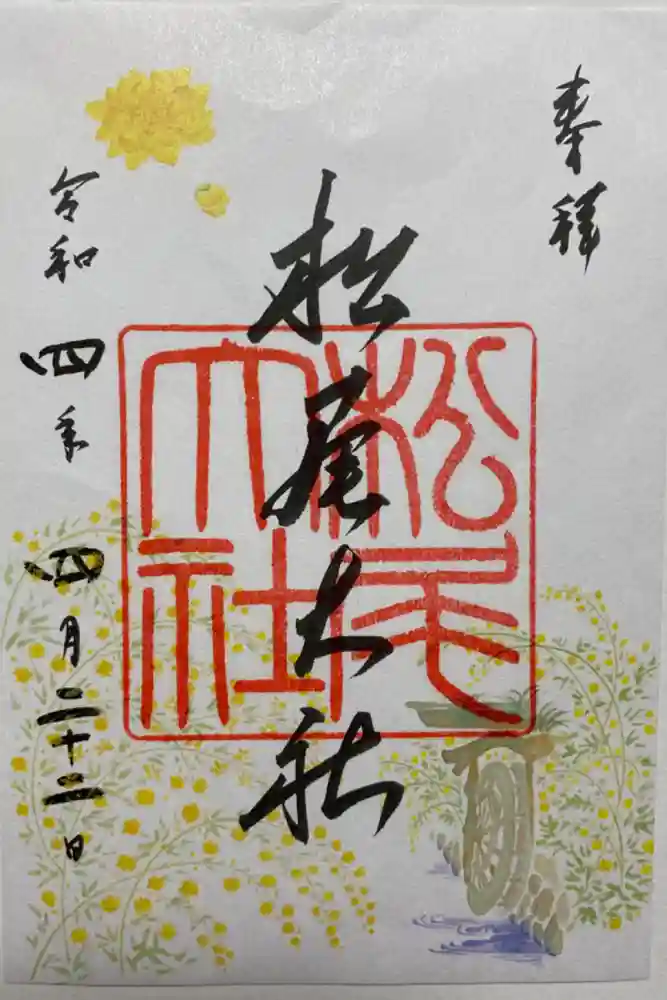 奉拝
松尾大社
松尾大社
令和四年四月二十二日